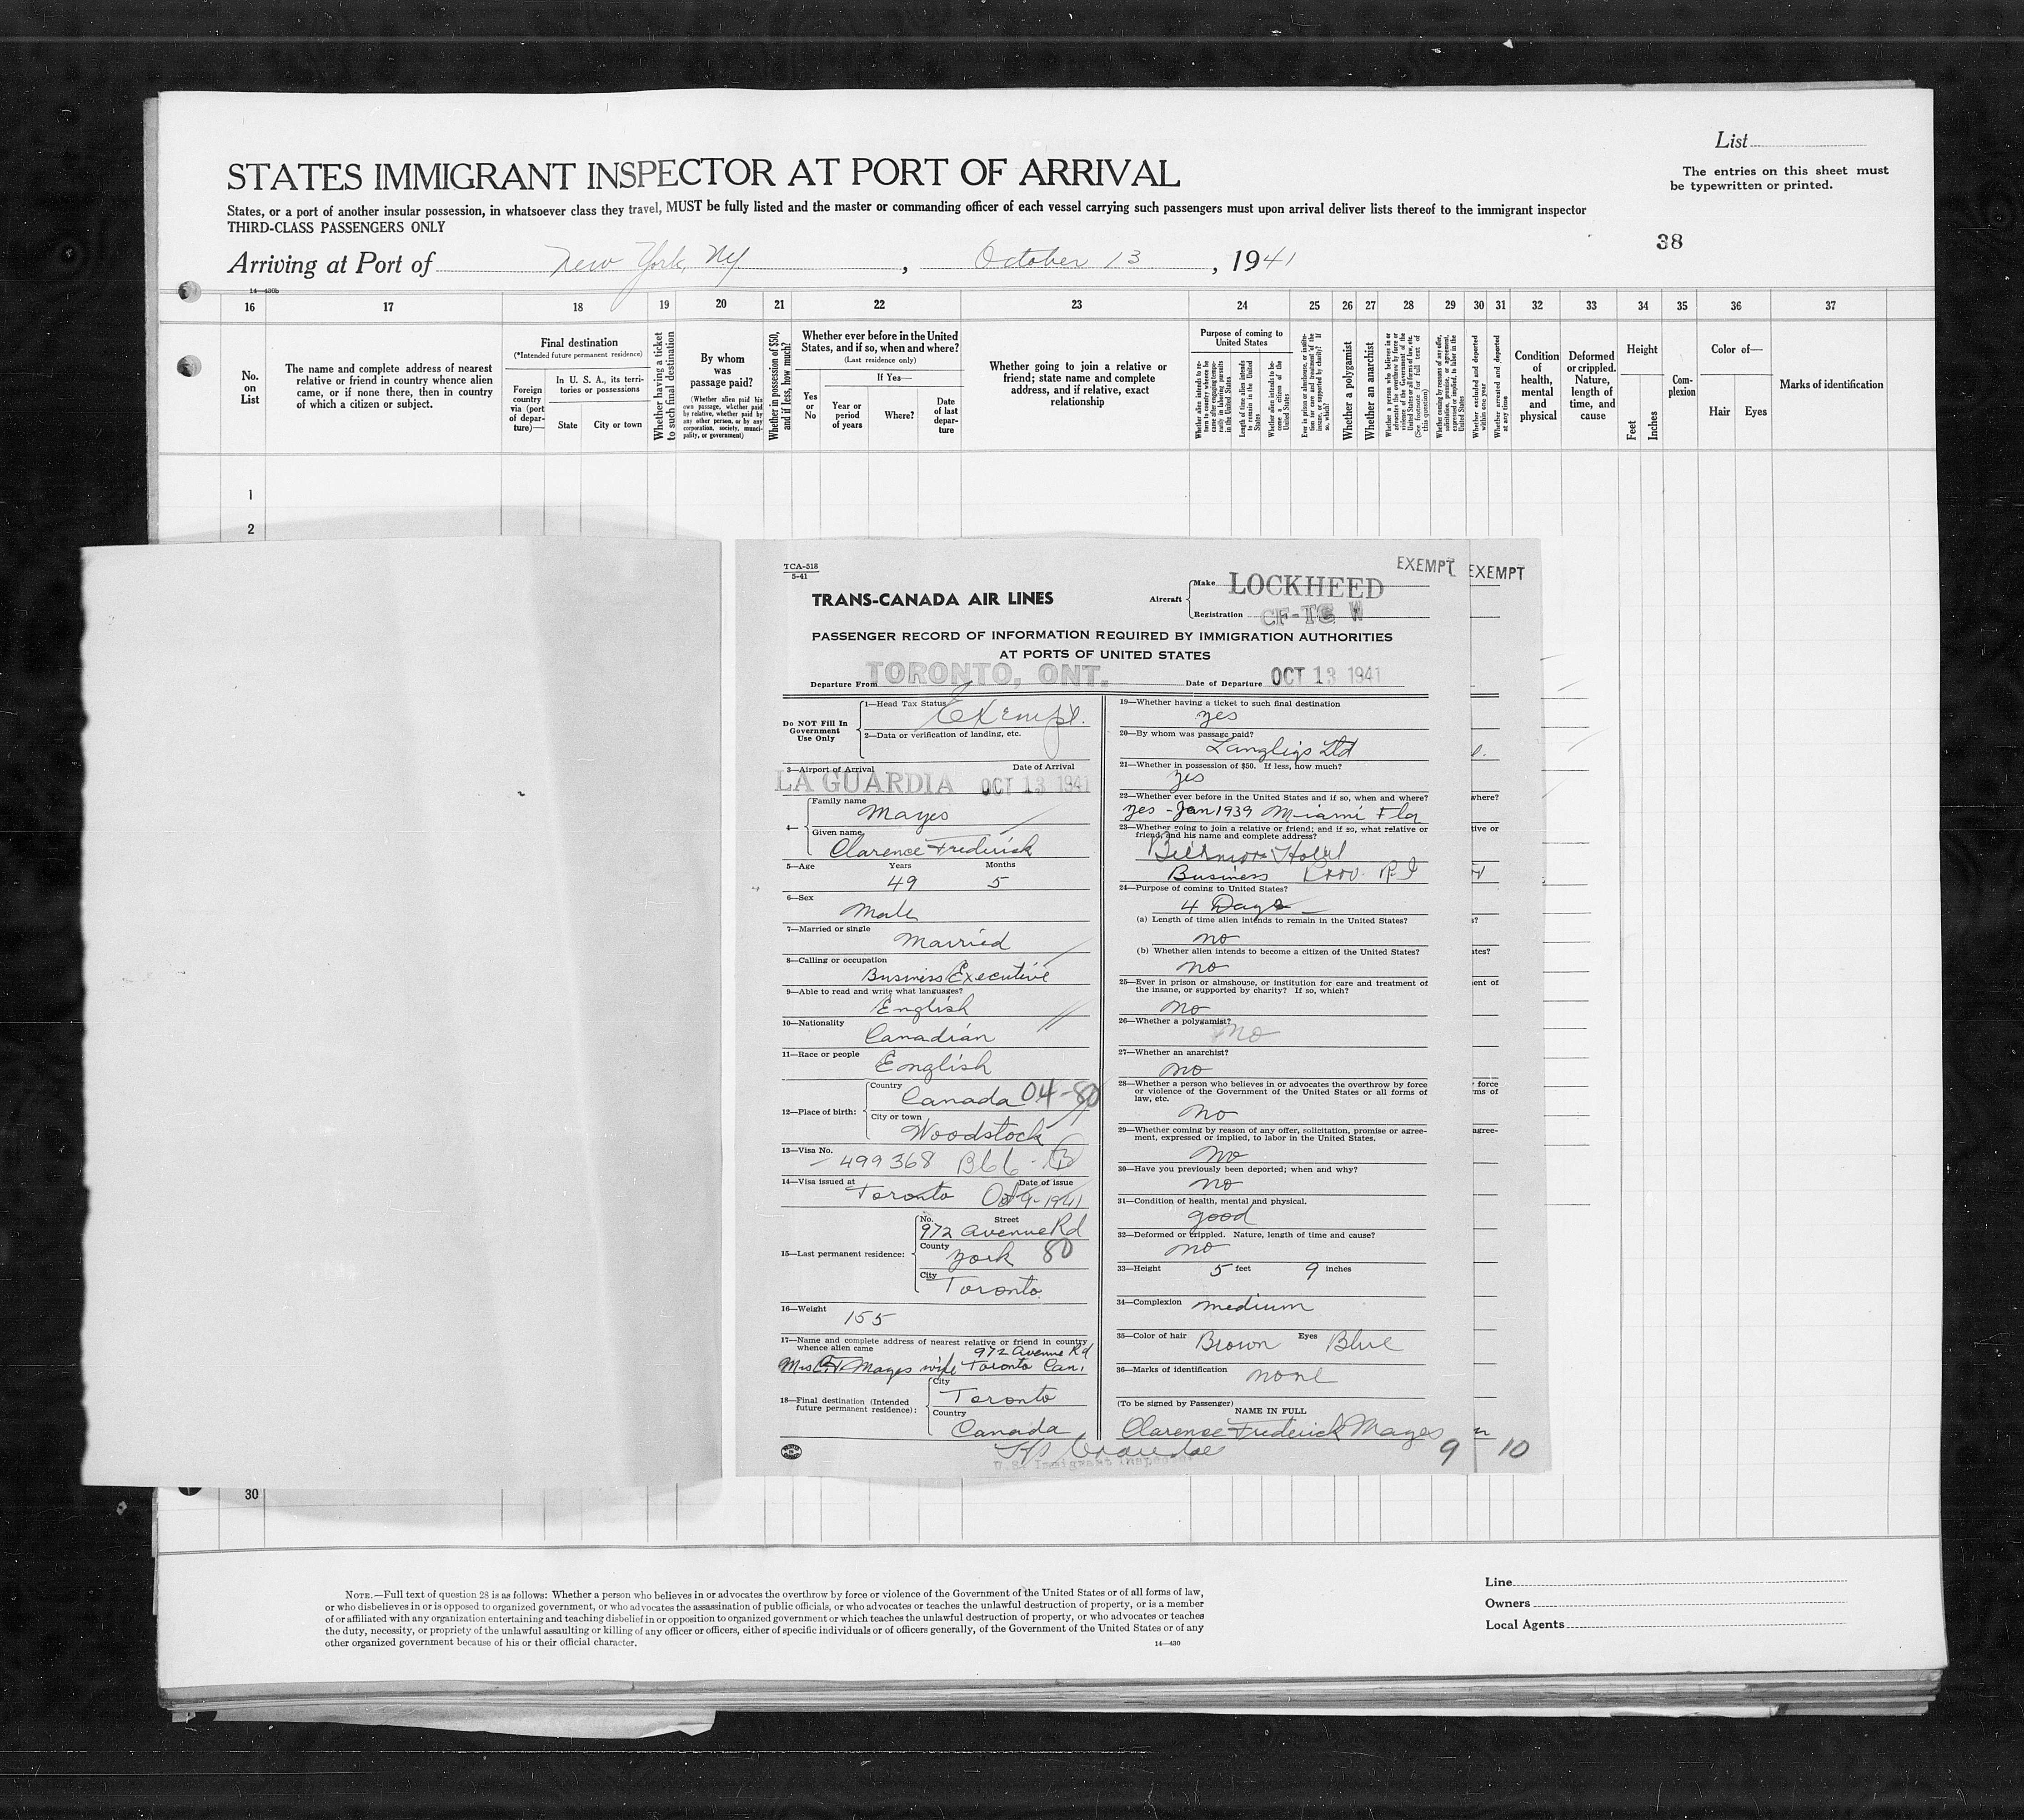 List
The entries on this sheet must
be typewritten or printed.
STATES IMMIGRANT INSPECTOR AT PORT OF ARRIVAL
States, or a port of another insular possession, in whatsoever class they travel, MUST be fully listed and the master or commanding officer of each vessel carrying such passengers must upon arrival deliver lists thereof to the immigrant inspector
THIRD-CLASS PASSENGERS ONLY
38
Arriving at Port of New York, NY, October 13, 1941
14—430b
16 17 18 19 20 21 22 23 24 25 26 27 28 29 30 31 32 33 34 35 36 37
No. on List
The name and complete address of nearest
relative or friend in country whence alien
came, or if none there, then in country
of which a citizen or subject.
Final destination
(*Intended future permanent residence)
Foreign country via (port of departure)—
In U. S. A., its territories or possessions
State
City or town
Whether having a ticket to such final destination
By whom was passage paid?
(Whether alien paid his own passage, whether paid by relative, whether paid by any other person, or by any corporation, society, municipality, or government)
Whether in possession of $50, and if less, how much?
Whether ever before in the United States, and if so, when and where?
(Last residence only)
Yes or No
If Yes—
Year or period of years
Where?
Date of last departure
Whether going to join a relative or
friend; state name and complete
address, and if relative, exact
relationship
Purpose of coming to United States
Whether alien intends to return to country whence he came after engaging temporarily in laboring pursuits in the United States
Length of time alien intends to remain in the United States
Whether alien intends to become a citizen of the United States
Ever in prison or almshouse, or institution for care and treatment of the insane, or supported by charity? If so, which?
Whether a polygamist
Whether an anarchist
Whether a person who believes in or advocates the overthrow by force or violence of the Government of the United States or all forms of law, etc. (See footnote for full text of this question)
Whether coming by reasons of any offer, solicitation, promise, or agreement, expressed or implied, to labor in the United States
Whether excluded and deported within one year
Whether arrested and deported at any time
Condition of health, mental and physical
Deformed or crippled. Nature, length of time, and cause
Height
Feet
Inches
Complexion
Color of—
Hair
Eyes
Marks of identification
1
2
TCA-518
5-41
TRANS-CANADA AIR LINES
Aircraft
Make LOCKHEED
Registration CF-TC W
EXEMPT
EXEMPT
PASSENGER RECORD OF INFORMATION REQUIRED BY IMMIGRATION AUTHORITIES
AT PORTS OF UNITED STATES
Departure From TORONTO, ONT. Date of Departure OCT 13 1941
Do NOT Fill In
Government
Use Only
1—Head Tax Status Exempt.
2—Data or verification of landing, etc.
3—Airport of Arrival Date of Arrival
LA GUARDIA OCT 13 1941
4—
Family name
Mayes
Given name
Clarence Frederick
5—Age Years Months
49 5
6—Sex
Male
7—Married or single
Married
8—Calling or occupation
Business Executive
9—Able to read and write what languages?
English
10—Nationality
Canadian
11—Race or people
English
12—Place of birth:
Country
Canada 04-80
City or town
Woodstock
13—Visa No.
499368 B66
14—Visa issued at Date of issue
Toronto Oct 9-1941
15—Last permanent residence:
No. Street
972 Avenue Rd
County
York 80
City
Toronto
16—Weight
155
17—Name and complete address of nearest relative or friend in country
whence alien came 972 Avenue Rd
Mrs C.F. Mayes wife Toronto Can.
18—Final destination (Intended
future permanent residence):
City
Toronto
Country
Canada
19—Whether having a ticket to such final destination
yes
20—By whom was passage paid?
Langleys Ltd
21—Whether in possession of $50. If less, how much?
yes
22—Whether ever before in the United States and if so, when and where?
yes - Jan 1939 Miami Fla
23—Whether going to join a relative or friend; and if so, what relative or
friend, and his name and complete address?
Biltmore Hotel
Business Prov. R I
24—Purpose of coming to United States?
4 Days
(a) Length of time alien intends to remain in the United States?
no
(b) Whether alien intends to become a citizen of the United States?
no
25—Ever in prison or almshouse, or institution for care and treatment of
the insane, or supported by charity? If so, which?
no
26—Whether a polygamist?
no
27—Whether an anarchist?
no
28—Whether a person who believes in or advocates the overthrow by force
or violence of the Government of the United States or all forms of
law, etc.
no
29—Whether coming by reason of any offer, solicitation, promise or agree-
ment, expressed or implied, to labor in the United States.
no
30—Have you previously been deported; when and why?
no
31—Condition of health, mental and physical.
good
32—Deformed or crippled. Nature, length of time and cause?
no
33—Height 5 feet 9 inches
34—Complexion medium
35—Color of hair Brown Eyes Blue
36—Marks of identification
none
(To be signed by Passenger)
NAME IN FULL
Clarence Frederick Mayes
U.S. Immigrant Inspector
9
10
where?
tive or
s?
ates?
ent of
force
ms of
agree-
30
NOTE.—Full text of question 28 is as follows: Whether a person who believes in or advocates the overthrow by force or violence of the Government of the United States or of all forms of law,
or who disbelieves in or is opposed to organized government, or who advocates the assassination of public officials, or who advocates or teaches the unlawful destruction of property, or is a member
of or affiliated with any organization entertaining and teaching disbelief in or opposition to organized government or which teaches the unlawful destruction of property, or who advocates or teaches
the duty, necessity, or propriety of the unlawful assaulting or killing of any officer or officers, either of specific individuals or of officers generally, of the Government of the United States or of any
other organized government because of his or their official character.
14—430
Line
Owners
Local Agents